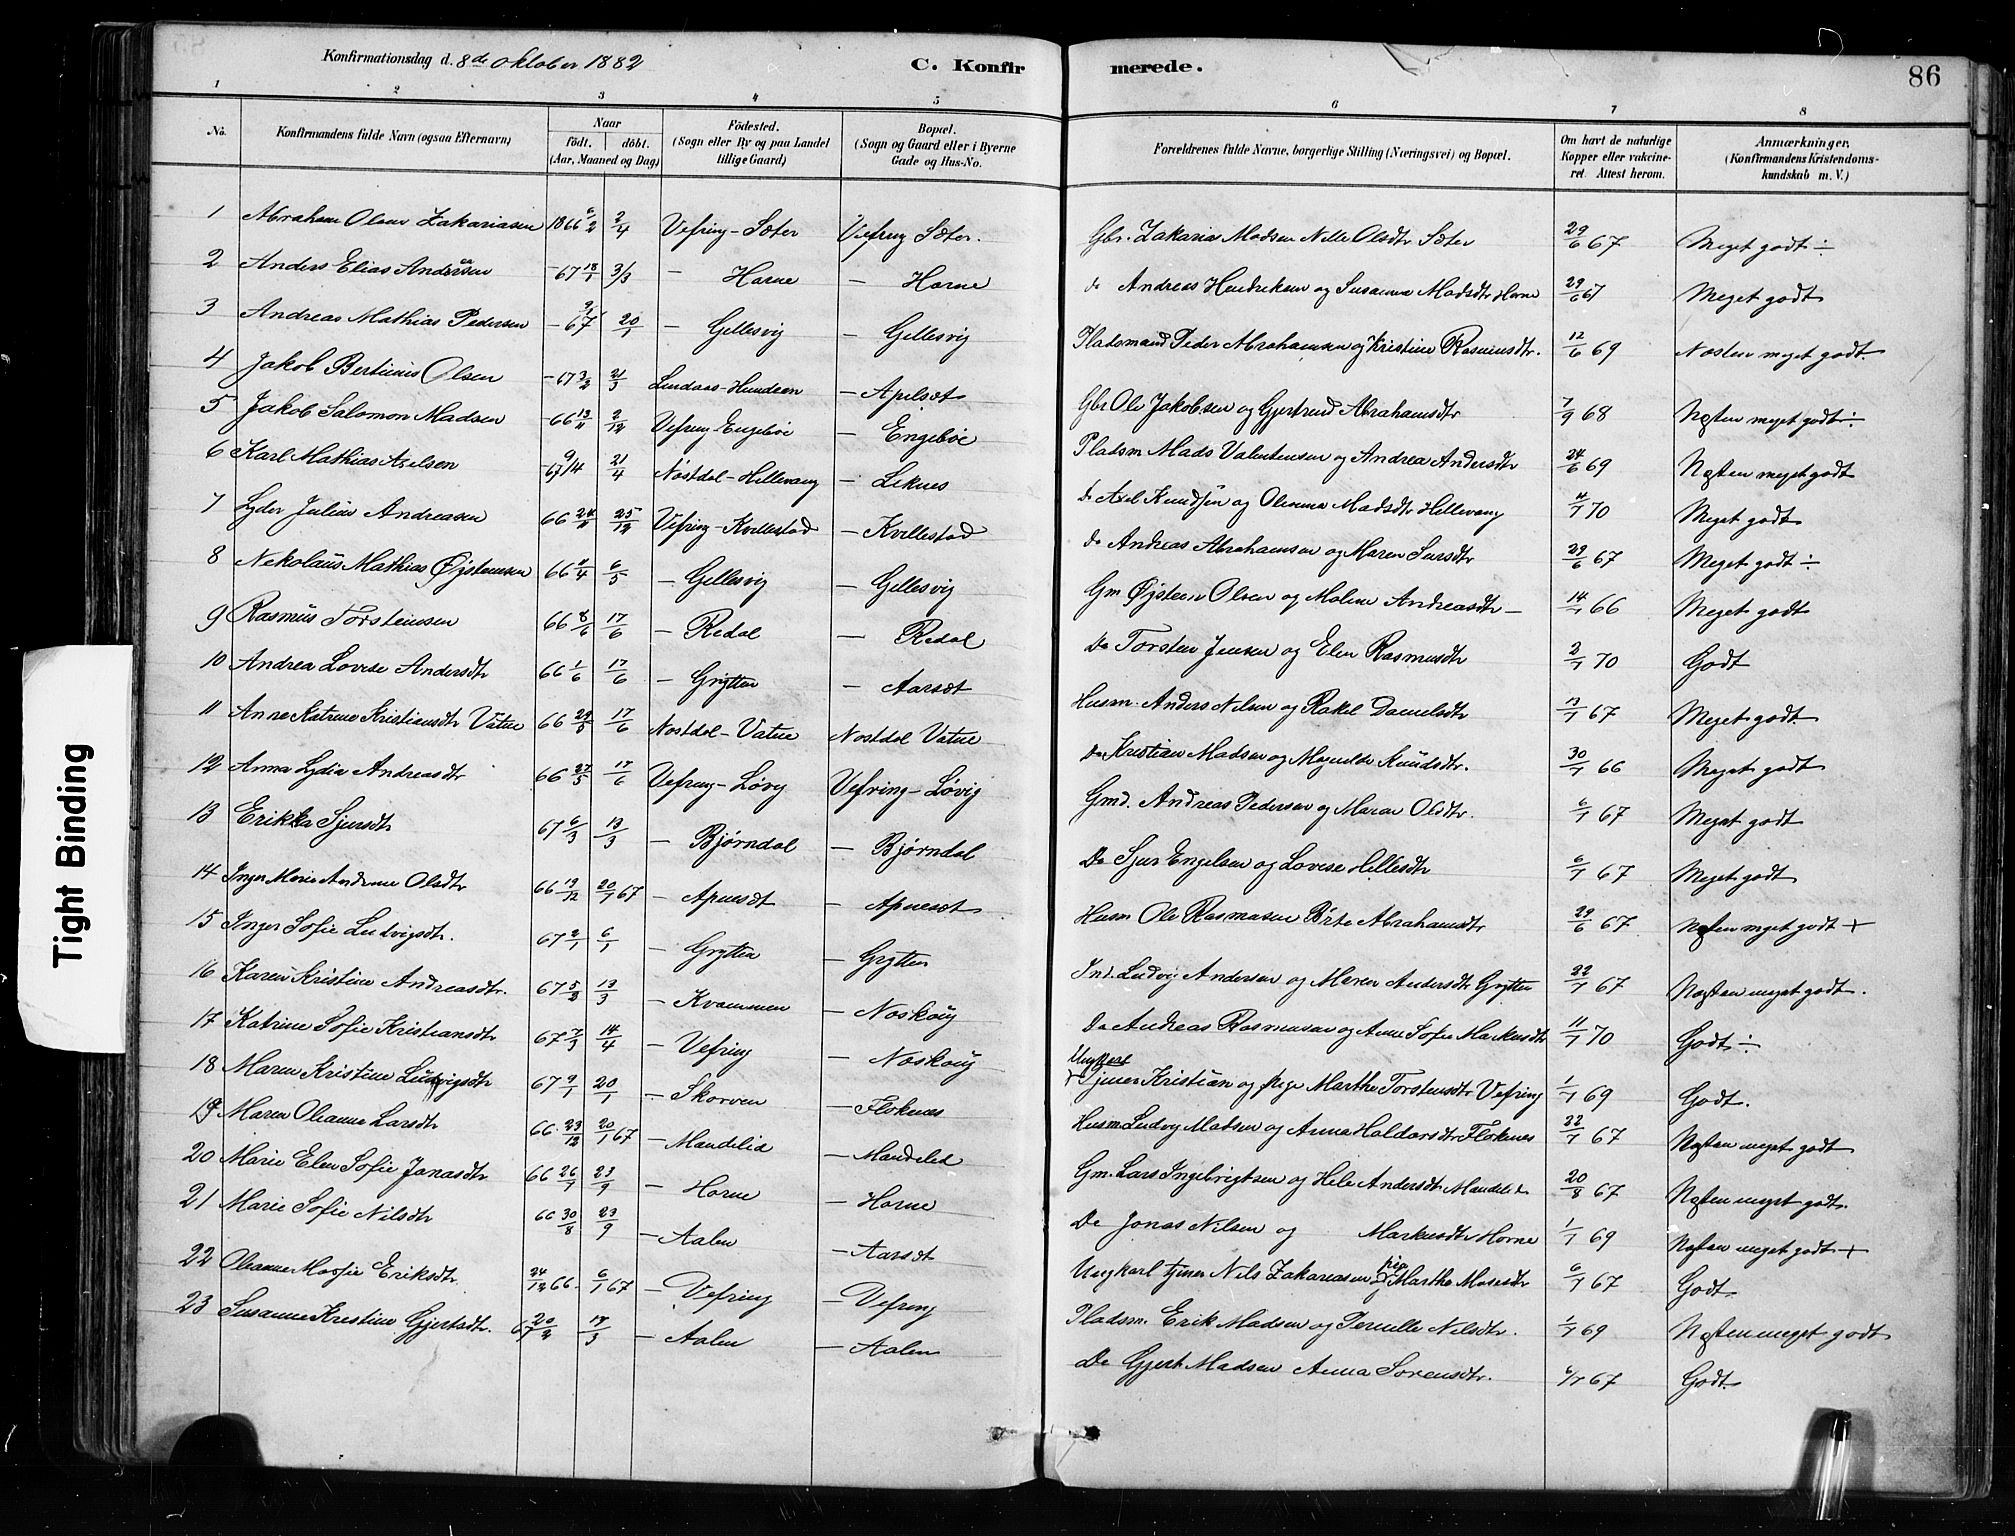 Konfirmationsdag d. 8de Oktober 1882
C. Konfirmerede.
86
1 2 3 4 5 6 7 8
No. Konfirmandens fulde Navn (ogsaa Efternavn) Naar født. døbt. (Aar, Maaned og Dag) Fødested. (Sogn eller By og paa Landet tillige Gaard) Bopæl. (Sogn og Gaard eller i Byerne Gade og Hus-No. Forældrenes fulde Navne, borgerlige Stilling (Næringsvei) og Bopæl. Om havt de naturlige Kopper eller vakcineret. Attest herom. Anmærkninger. (Konfirmandens Kristendomskundskab m. V.)
1 Abraham Olsen Zakariasen 1866 6/2 2/4 Vefring-Sæter Vefring Sæter. Gbr. Zakarias Madsen Nille Olsdtr Sæter 29/6 67 Meget godt ÷
2 Anders Elias Andersen - 67 18/1 3/3 - Horne - Horne do Andreas Hendriksen og Susanna Madsdtr Horne 29/6 67 Meget godt
3 Andreas Mathias Pedersen - 67 9/1 20/1 - Gellesvig - Gellesvig Pladsmand Peder Abrahamsen og Kristine Rasmusdtr. 12/6 69 Næsten meget godt
4 Jakob Bertinius Olsen - 67 3/2 21/3 Lindaas - - Apelsæt Gbr Ole Jakobsen og Gjertrud Abrahamsdtr 7/9 68 Næsten meget godt ÷
5 Jakob Salomon Madsen - 66 13/11 2/12 Vefring Engebøe - Engebøe Pladsm Mads Valentinsen og Andrea Andersdtr 24/6 69 Næsten meget godt
6 Karl Mathias Axelsen - 67 9/4 21/4 Nostdal-Hillevang - Leknes do Axel Knudsen og Oleanna Madsdtr Hillevang 4/7 70 Meget godt
7 Lyder Julius Andreasen 66 24/11 25/12 Vefring-Kvillestad - Kvillestad do Andreas Abrahamsen og Maren Larsdtr 29/6 67 Meget godt ÷
8 Nekolaus Mathias Øjstensen 66 4/4 6/5 - Gellesvig Gellesvig Gm Øjsten Olsen og Malene Andreasdtr - 14/7 66 Meget godt
9 Rasmus Torstensen 66 8/6 17/6 - Redal - Redal Do Torsten Jensen og Elen Rasmusdtr 2/7 70 Godt
10 Andrea Lovise Andersdtr 66 1/6 17/6 - Grytten - Aarsæt Husm. Anders Nilsen og Rakel Danielsdtr 13/7 67 Meget godt
11 Anne Katrine Kristiansdtr Vatne 66 29/5 17/6 Nostdal-Vatne Nostdal Vatne Do Kristian Madsen og Magnilde Knudsdtr. 30/7 66 Meget godt
12 Anna Lydia Andreasdtr 66 27/5 17/6 Vefring-Løvig Vefring-Løvig Gmd. Andreas Pedersen og Maren Olsdtr. 6/7 67 Meget godt
13 Erikka Sjursdtr 67 6/3 13/3 - Bjørndal - Bjørndal Do Sjur Engelsen og Lovise Hillesdtr 6/7 67 Meget godt
14 Inger Marie Andrine Olsdtr 66 19/12 20/1 67 - Apnesæt - Apnesæt Husm Ole Rasmusen Brite Abrahamsdtr 29/6 67 Næsten meget godt +
15 Inger Sofie Ludvigsdtr. 67 2/1 6/1 - Grytten - Grytten Ind. Ludvig Andersen og Maren Andersdtr Grytten 22/7 67 Næsten meget godt.
16 Karen Kristine Andreasdtr. 67 5/2 13/3 - Kvammen - Naskøig Do Andreas Rasmusen og Anne Sofie Markusdtr 11/7 70 Godt ÷
17 Katrine Sofie Kristiansdtr 67 7/3 14/4 - Vefring - Naskøig Ungkarl Tjener Kristian og Pige Marthe Torstensdtr Vefring 1/7 69 Godt.
18 Maren Kristine Ludvigsdtr 67 9/1 20/1 - Skorven - Floknes Husm Ludvig Madsen og Anna Haldorsdtr Floknes 22/7 67 Næsten meget godt
19 Maren Oleanne Larsdtr 66 23/12 20/1 67 - Mandelid - Mandelid Gm. Lars Ingebrigtsen og Hele Andersdtr Mandelid 20/8 67 Næsten meget godt.
20 Marie Elen Sofie Jonasdtr 66 26/7 23/9 - Horne - Horne Do Jonas Nilsen og Markusdtr Horne 1/7 69 Næsten meget godt +
21 Marie Sofie Nilsdtr 66 30/8 23/9 - Aalen - Aarsæt Ungkarl tjener Nils Zakariasen pige Marthe Mosesdtr 6/7 67 Godt
22 Oleanne Marie Eriksdtr. 24/12 66 6/1 67 - Vefring - Vefring Pladsm. Erik Madsen og Pernille Nilsdtr. 1/7 69 Næsten meget godt
23 Susanne Kristine Gjertsdtr. 67 20/2 17/3 - Aalen - Aalen Do Gjert Madsen Anna Sorensdtr. 6/7 67 Godt
Tight Binding